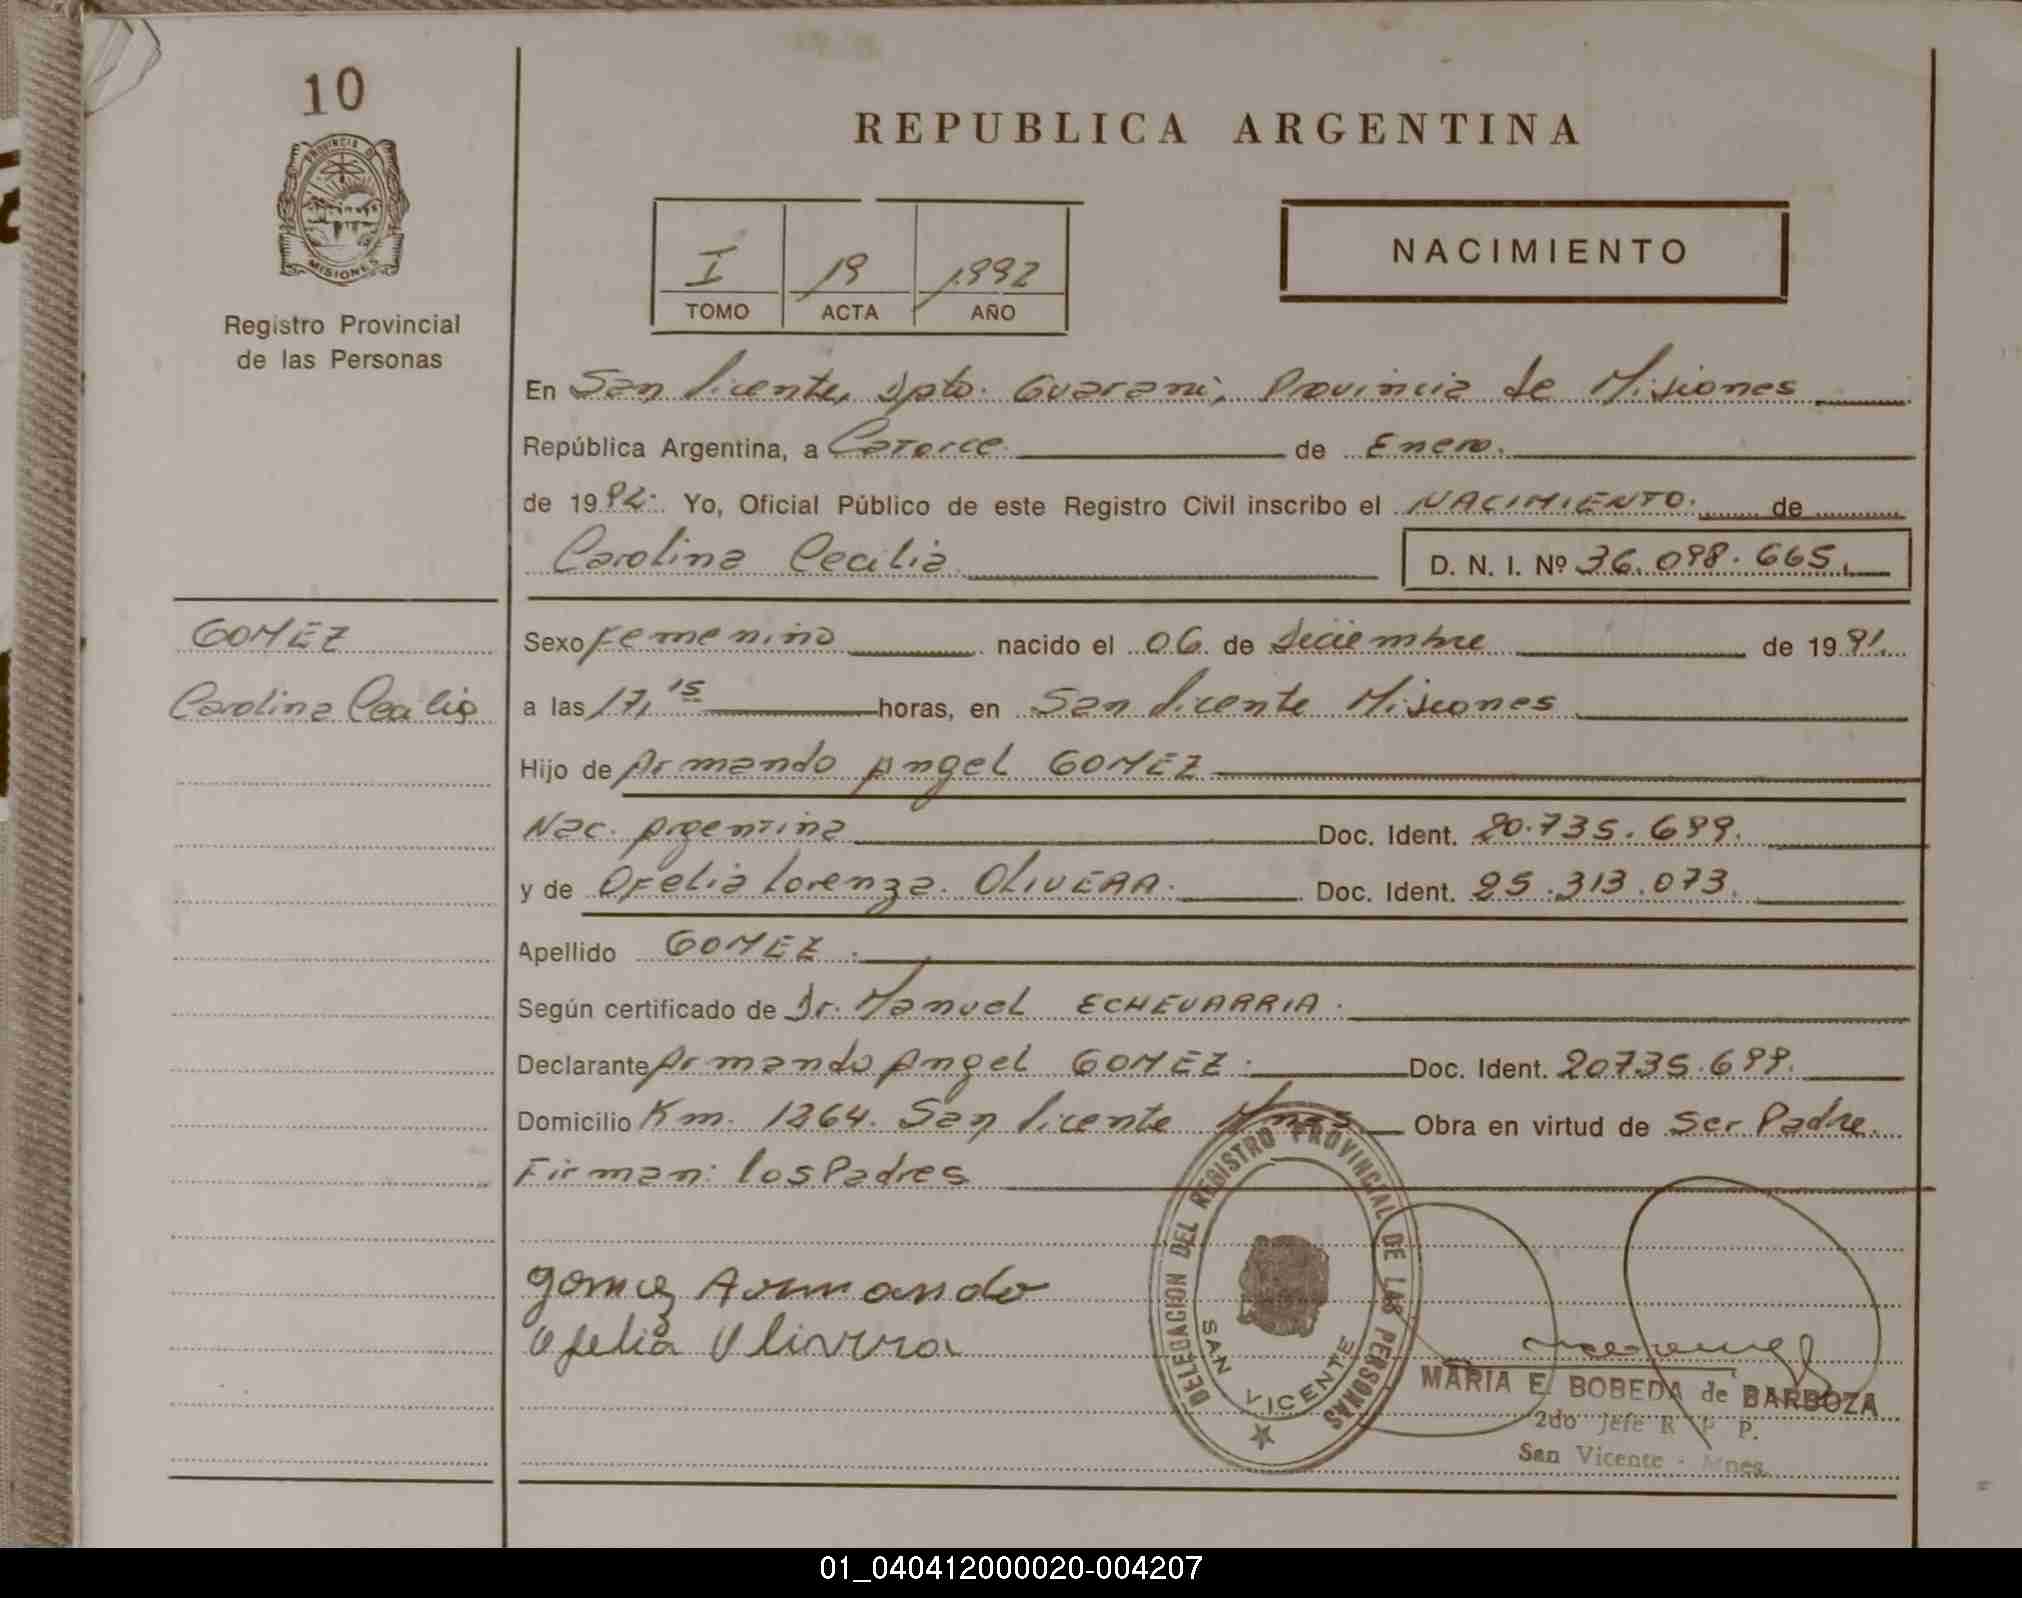 10
PROVINCIA DE
MISIONES
Registro Provincial
de las Personas
REPUBLICA ARGENTINA
I 19 1992
TOMO ACTA AÑO
NACIMIENTO
En San Vicente, Dpto. Guarani, Provincia de Misiones
República Argentina, a Catorce de Enero.
de 1992. Yo, Oficial Público de este Registro Civil inscribo el NACIMIENTO. de
Carolina Cecilia D. N. I. Nº 36.098.665.
GOMEZ
Carolina Cecilia
Sexo Femenino nacido el 06 de Diciembre de 1991.
a las 17,15 horas, en San Vicente Misiones
Hijo de Armando Angel GOMEZ
Nac. Argentina Doc. Ident. 20.735.699.
y de Ofelia Lorenza OLIVERA. Doc. Ident. 25.313.073.
Apellido GOMEZ.
Según certificado de Dr. Manuel ECHEVARRIA.
Declarante Armando Angel GOMEZ. Doc. Ident. 20735.699.
Domicilio Km. 1264. San Vicente Mnes Obra en virtud de Ser Padre.
Firman: los Padres
Gomez Armando
Ofelia Olivera
DELEGACION DEL REGISTRO PROVINCIAL DE LAS PERSONAS
SAN VICENTE
MARIA E. BOBEDA de BARBOZA
2do Jefe R P P.
San Vicente - Mnes.
01_040412000020-004207